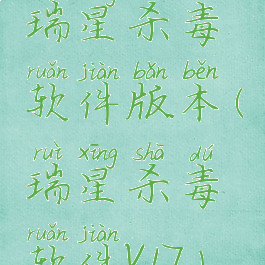 瑞星杀毒
ruǎn jiàn bǎn běn
软件版本(
ruì xīng shā dú
瑞星杀毒
ruǎn jiàn
软件V17)